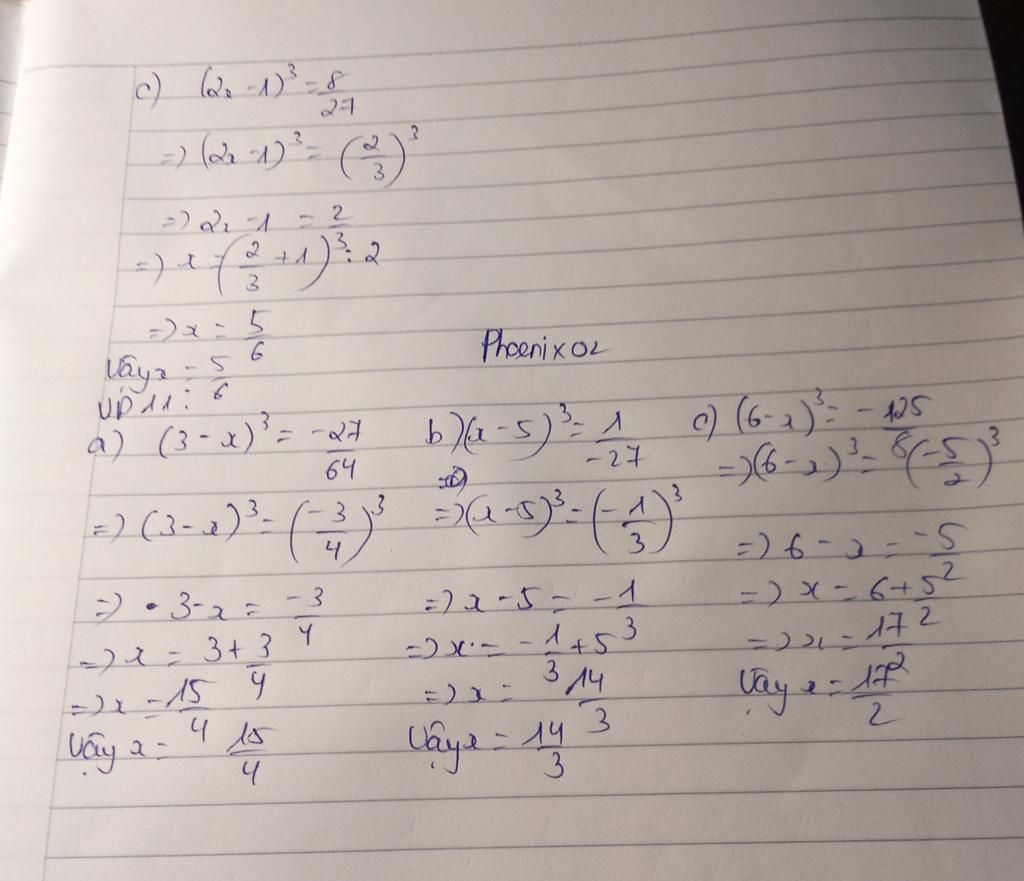 c) (2x - 1)³ = 8/27
=> (2x - 1)³ = (2/3)³
=> 2x - 1 = 2/3
=> x = (2/3 + 1) : 2
=> x = 5/6
Vậy x = 5/6
Phoenix02
VD 11:
a) (3 - x)³ = -27/64
=> (3 - x)³ = (-3/4)³
=> 3 - x = -3/4
=> x = 3 + 3/4
=> x = 15/4
Vậy x = 15/4
b) (x - 5)³ = 1/-27
=> (x - 5)³ = (-1/3)³
=> x - 5 = -1/3
=> x = -1/3 + 5
=> x = 14/3
Vậy x = 14/3
c) (6 - x)³ = -125/8
=> (6 - x)³ = (-5/2)³
=> 6 - x = -5/2
=> x = 6 + 5/2
=> x = 17/2
Vậy x = 17/2